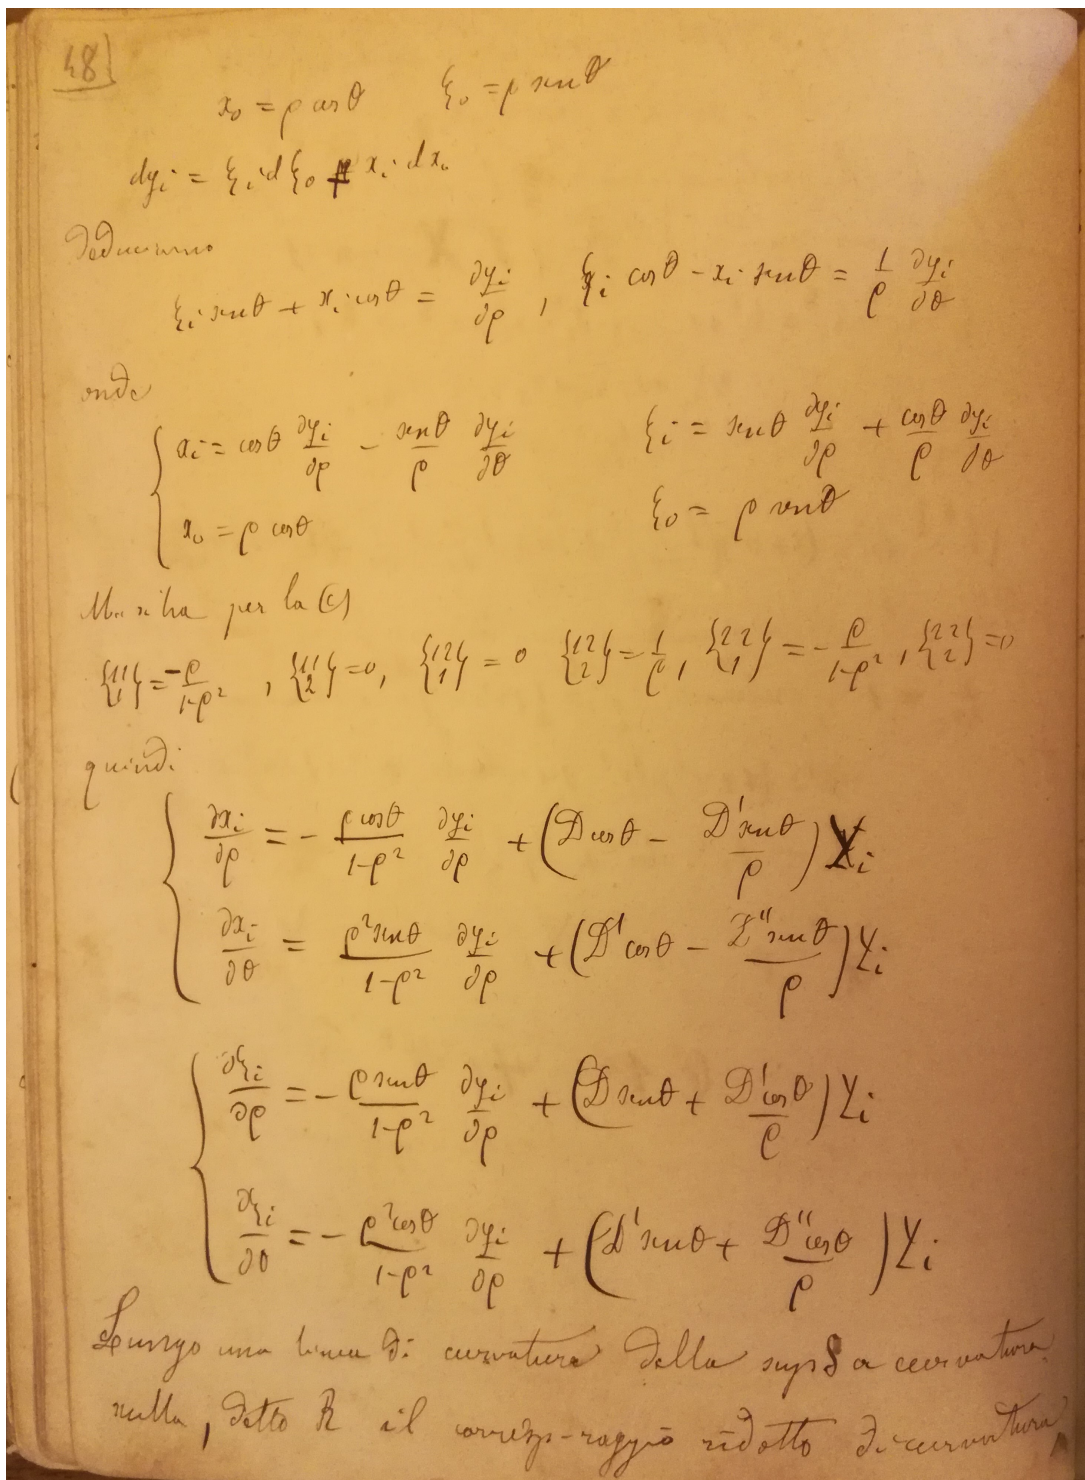 48]
x₀ = ρ cosθ    ξ₀ = ρ senθ
dyᵢ = ξᵢ dξ₀ + xᵢ dx₀
deduciamo
ξᵢ senθ + xᵢ cosθ = ∂yᵢ/∂ρ , ξᵢ cosθ − xᵢ senθ = 1/ρ ∂yᵢ/∂θ
onde
{ xᵢ = cosθ ∂yᵢ/∂ρ − senθ/ρ ∂yᵢ/∂θ    ξᵢ = senθ ∂yᵢ/∂ρ + cosθ/ρ ∂yᵢ/∂θ
x₀ = ρ cosθ    ξ₀ = ρ senθ
Ma si ha per la (C)
{11 1} = −ρ/1−ρ² , {11 2} = 0, {12 1} = 0 {12 2} = 1/ρ, {22 1} = −ρ/1−ρ², {22 2} = 0
quindi
{ ∂xᵢ/∂ρ = − ρ cosθ/1−ρ² ∂yᵢ/∂ρ + (D cosθ − D' senθ/ρ) Yᵢ
∂xᵢ/∂θ = ρ² senθ/1−ρ² ∂yᵢ/∂ρ + (D' cosθ − D'' senθ/ρ) Yᵢ
{ ∂ξᵢ/∂ρ = − ρ senθ/1−ρ² ∂yᵢ/∂ρ + (D senθ + D' cosθ/ρ) Yᵢ
∂ξᵢ/∂θ = − ρ² cosθ/1−ρ² ∂yᵢ/∂ρ + (D' senθ + D'' cosθ/ρ) Yᵢ
Lungo una linea di curvatura della sup S a curvatura
nulla, detto R il corrisp- raggio ridotto di curvatura,